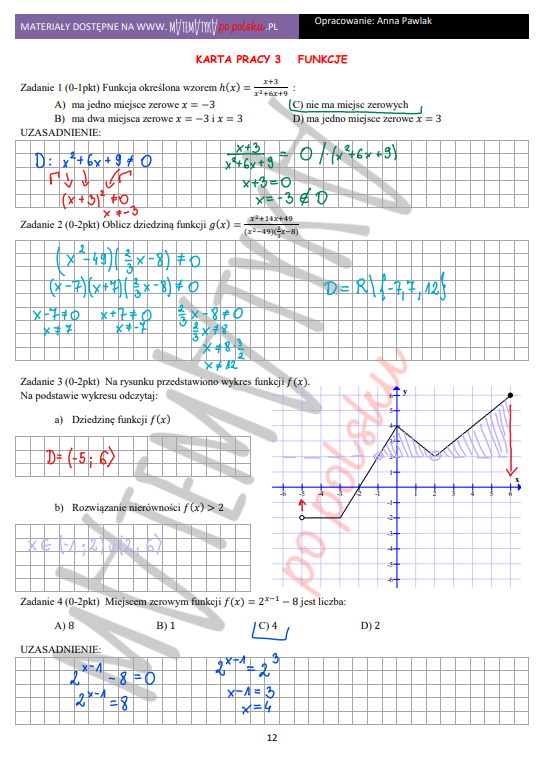 MATERIAŁY DOSTĘPNE NA WWW. MATEMATYKA po polsku .PL
Opracowanie: Anna Pawlak
KARTA PRACY 3 FUNKCJE
Zadanie 1 (0-1pkt) Funkcja określona wzorem h(x) = (x+3)/(x²+6x+9) :
A) ma jedno miejsce zerowe x = −3
C) nie ma miejsc zerowych
B) ma dwa miejsca zerowe x = −3 i x = 3
D) ma jedno miejsce zerowe x = 3
UZASADNIENIE:
D: x²+6x+9 ≠ 0
(x+3)² ≠ 0
x ≠ -3
(x+3)/(x²+6x+9) = 0 /·(x²+6x+9)
x+3=0
x=-3 ∉ D
Zadanie 2 (0-2pkt) Oblicz dziedzinę funkcji g(x) = (x²+14x+49)/((x²−49)(2/3x−8))
(x²-49)(2/3x-8) ≠ 0
(x-7)(x+7)(2/3x-8) ≠ 0
x-7≠0 x+7≠0 2/3x-8≠0
x≠7 x≠-7 2/3x≠8
x≠8·3/2
x≠12
D = R\{-7,7,12}
Zadanie 3 (0-2pkt) Na rysunku przedstawiono wykres funkcji f(x).
Na podstawie wykresu odczytaj:
a) Dziedzinę funkcji f(x)
D=(-5;6⟩
b) Rozwiązanie nierówności f(x) > 2
x∈(-1;2)∪(2,6⟩
y
6
4
2
-2
-3
-4
-5
-6
x
-6 -5 -4 -3 -2 -1 1 2 3 4 5 6
Zadanie 4 (0-2pkt) Miejscem zerowym funkcji f(x) = 2ˣ⁻¹ − 8 jest liczba:
A) 8 B) 1 C) 4 D) 2
UZASADNIENIE:
2ˣ⁻¹ - 8 = 0
2ˣ⁻¹ = 8
2ˣ⁻¹ = 2³
x-1=3
x=4
MATEMATYKA
po polsku
12